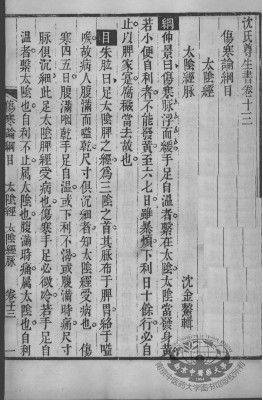 沈氏尊生書卷十三
傷寒論綱目
太陰經
太陰經脈
沈金鰲輯
綱仲景曰傷寒脈浮而緩手足自溫者繫在太陰太陰當發身黃
若小便自利者不能發黃至六七日雖暴煩下利日十餘行必自
止以脾家實腐穢當去故也
目朱肱曰足太陰脾之經為三陰之首其脈布于脾胃絡于嗌
喉故病人腹滿而嗌乾尺寸俱沉細者知太陰經受病也 傷
寒四五日腹滿咽乾手足自溫或下利不渴或腹滿時痛尺寸
脈俱沉細此足太陰脾經受病也傷寒手足必微冷若手足自
溫者繫太陰也自利不渴屬太陰也腹滿時痛屬太陰也自利
傷寒論綱目 太陰經 太陰經脈 卷十三 一